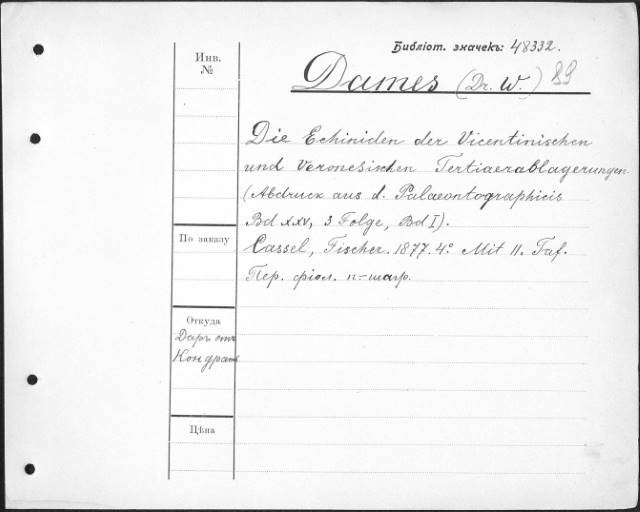 Библіот. значекъ: 48332.
Инв.
№
Dames (Dr. W.) 89
Die Echiniden der Vicentinischen
und Veronesischen Tertiaerablagerungen
(Abdruck aus d. Palaeontographicis
Bd XXV, 3 Folge, Bd I).
По заказу
Cassel, Fischer. 1877. 4° Mit 11. Taf.
Пер. фіол. п-шагр.
Откуда
Даръ отъ
Цѣна